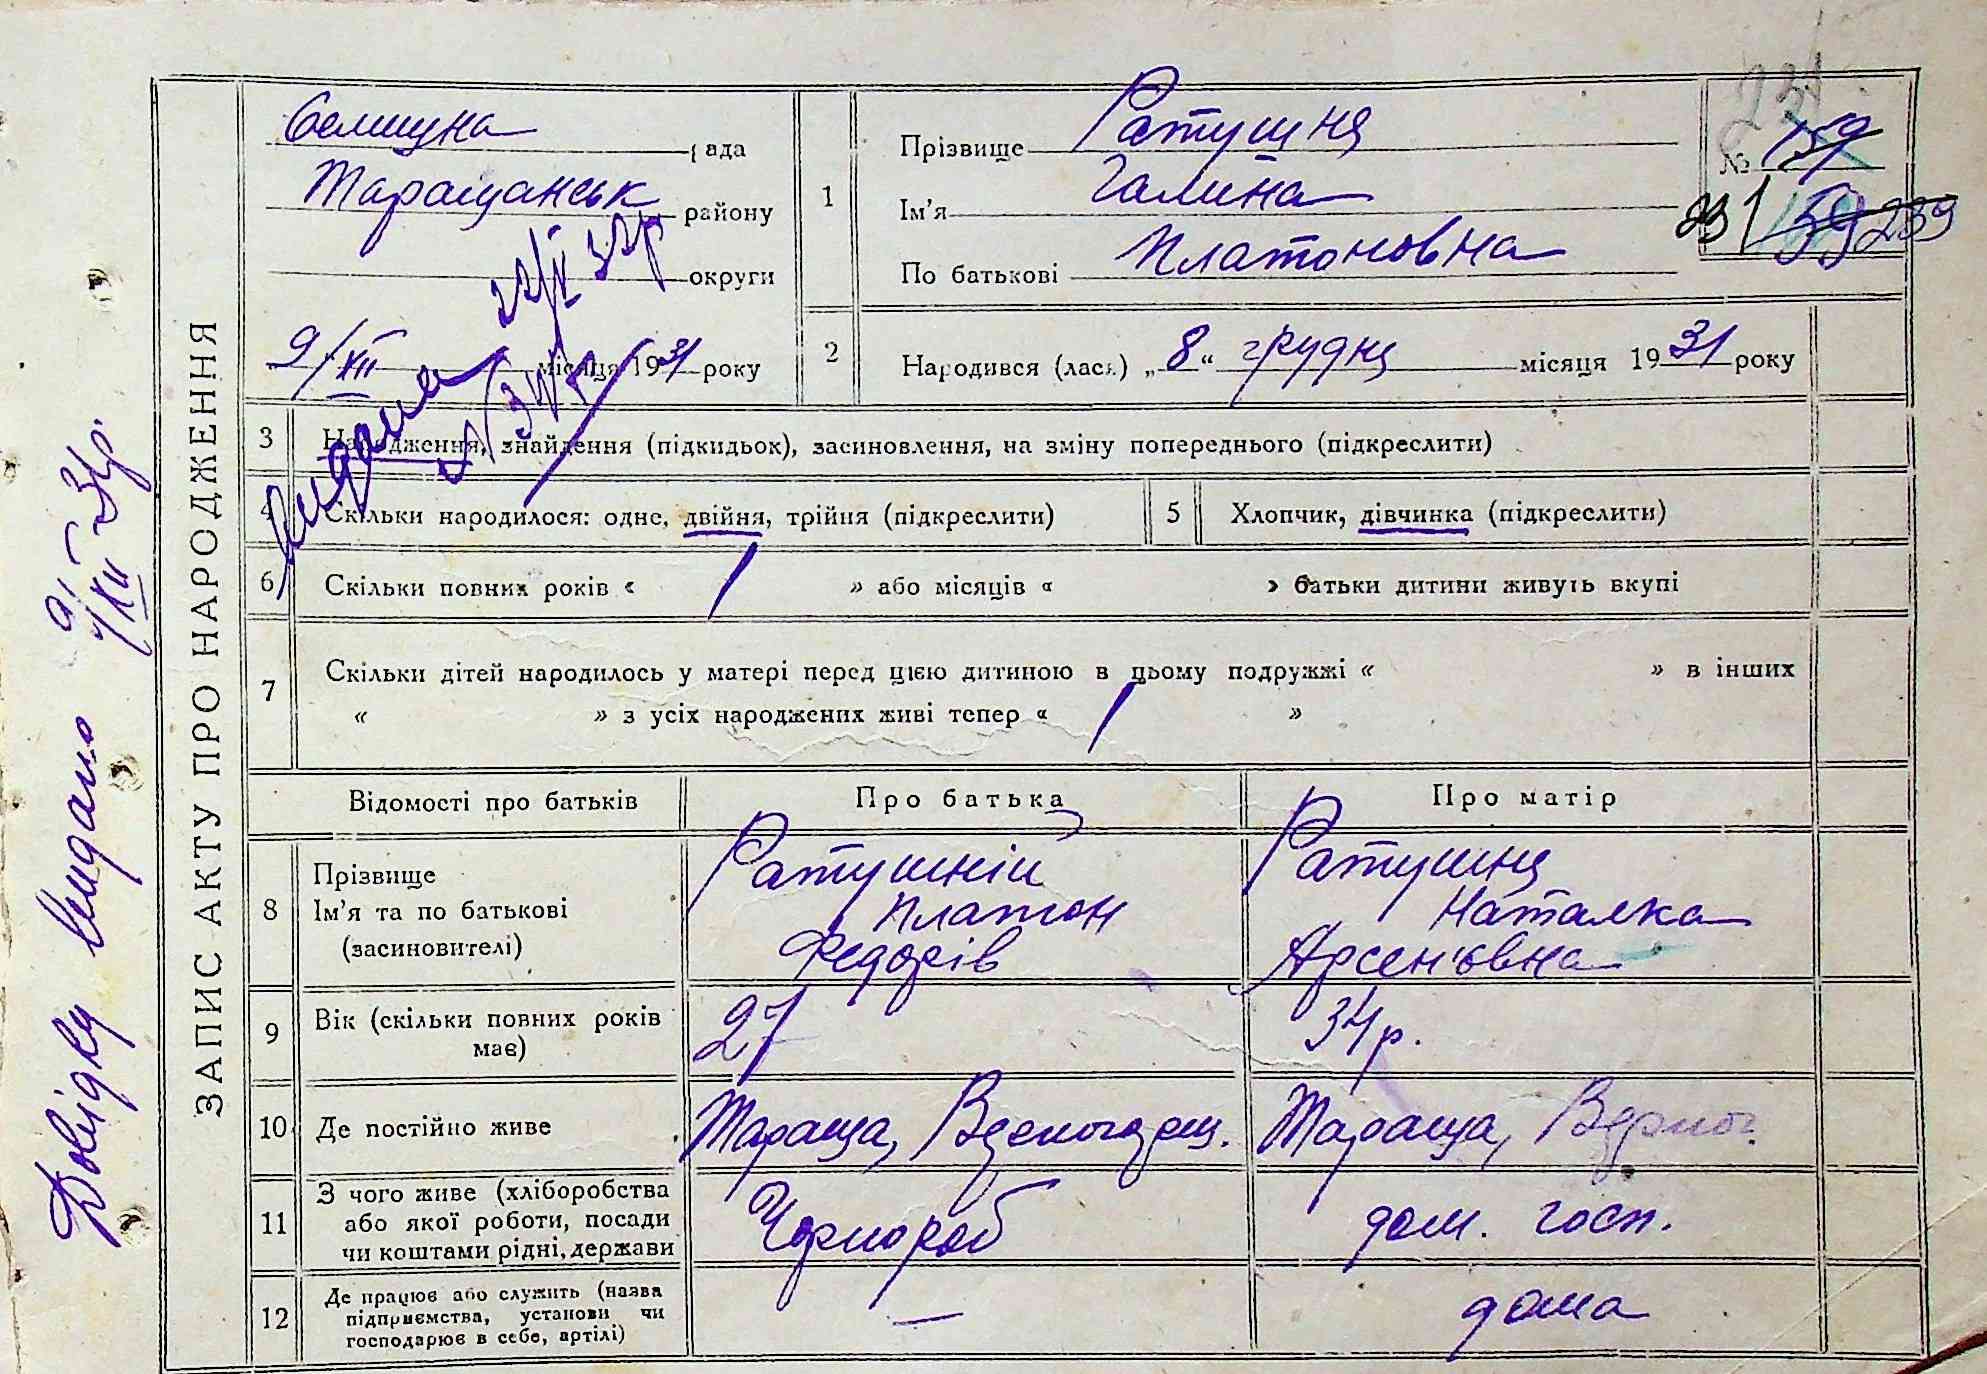 ЗАПИС АКТУ ПРО НАРОДЖЕННЯ
Довідку видано 9/XII 31р.
Селищна рада
Таращанськ району
округи
9/XII місяця 1931 року
видана
1 Прізвище Ратушня
Ім'я Галина
По батькові Платоновна
№ 159
231 59 239
2 Народився (лась) „8“ грудня місяця 1931 року
3 Народження, знайдення (підкидьок), засиновлення, на зміну попереднього (підкреслити)
4 Скільки народилося: одне, двійня, трійня (підкреслити)
5 Хлопчик, дівчинка (підкреслити)
6 Скільки повних років « » або місяців « » батьки дитини живуть вкупі
7 Скільки дітей народилось у матері перед цією дитиною в цьому подружжі « » в інших
« » з усіх народжених живі тепер « »
Відомості про батьків Про батька Про матір
8 Прізвище
Ім'я та по батькові
(засиновителі)
Ратушній
Платон
Федорів
Ратушня
Наталка
Арсеньовна
9 Вік (скільки повних років
має)
27
34 р.
10 Де постійно живе
Тараща,
Тараща,
11 З чого живе (хліборобства
або якої роботи, посади
чи коштами рідні, держави
Чорнороб
дом. госп.
12 Де працює або служить (назва
підприємства, установи чи
господарює в себе, артілі)
—
дома